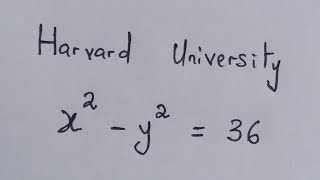 Harvard University
x² - y² = 36